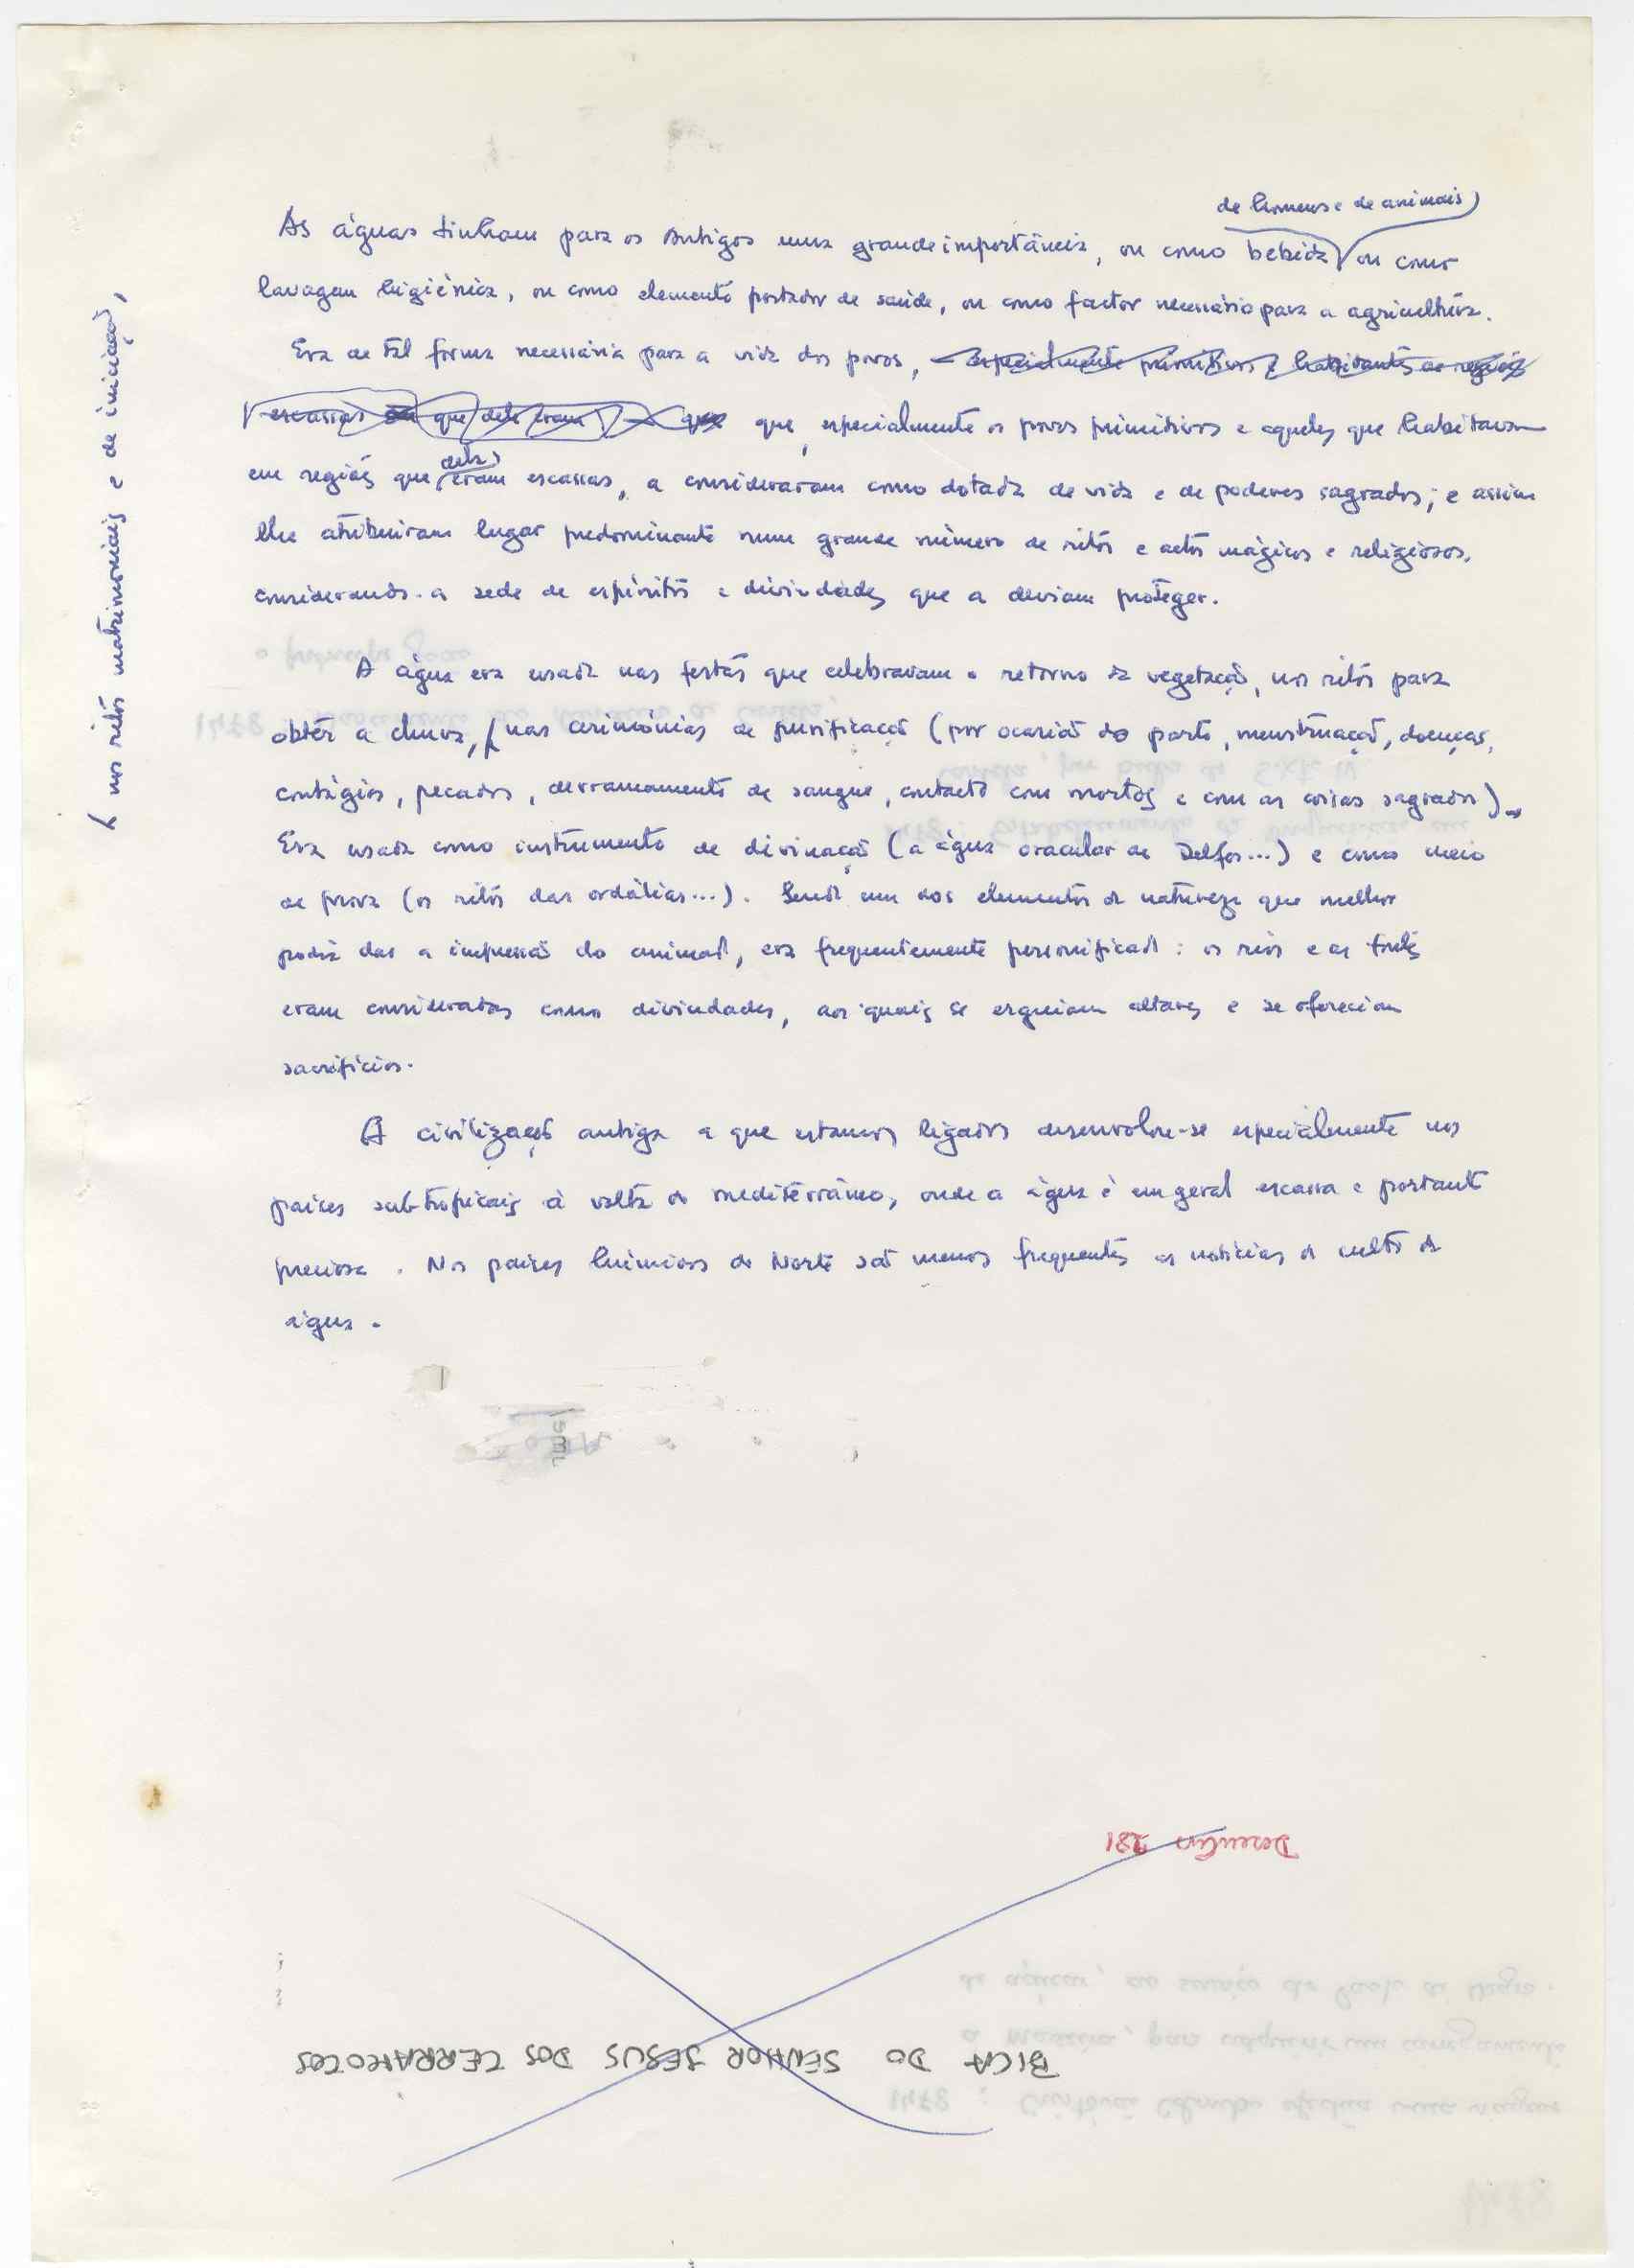 de homens e de animais
As águas tinham para os Antigos uma grande importância, ou como bebida ou como
lavagem higiénica, ou como elemento portador de saúde, ou como factor necessário para a agricultura.
Era de tal forma necessária para a vida dos povos, especialmente primitivos e habitantes de regiões
escassas que dela eram que que, especialmente os povos primitivos e aqueles que habitavam
em regiões que dela eram escassas, a consideraram como dotada de vida e de poderes sagrados; e assim
lhe atribuiram lugar predominante num grande número de ritos e actos mágicos e religiosos,
considerando-a sede de espíritos e divindades que a deviam proteger.
A água era usada nas festas que celebravam o retorno da vegetação, nos ritos para
obter a chuva, nas cerimónias de purificação (por ocasião do parto, menstruação, doenças,
contágios, pecados, derramamento de sangue, contacto com mortos e com as coisas sagradas).
Era usada como instrumento de divinação (a água oracular de Delfos...) e como meio
de prova (os ritos das ordálias...). Sendo um dos elementos da natureza que melhor
podia dar a impressão do animado, era frequentemente personificada: os rios e as fontes
eram considerados como divindades, aos quais se erguiam altares e se ofereciam
sacrifícios.
A civilização antiga a que estamos ligados desenvolve-se especialmente nos
países sub-tropicais à volta do mediterrâneo, onde a água é em geral escassa e portanto
preciosa. Nos países húmidos do Norte são menos frequentes as notícias do culto da
água.
nos ritos matrimoniais e de iniciação,
Dezembro 281
BICA DO SENHOR JESUS DOS TERRAMOTOS